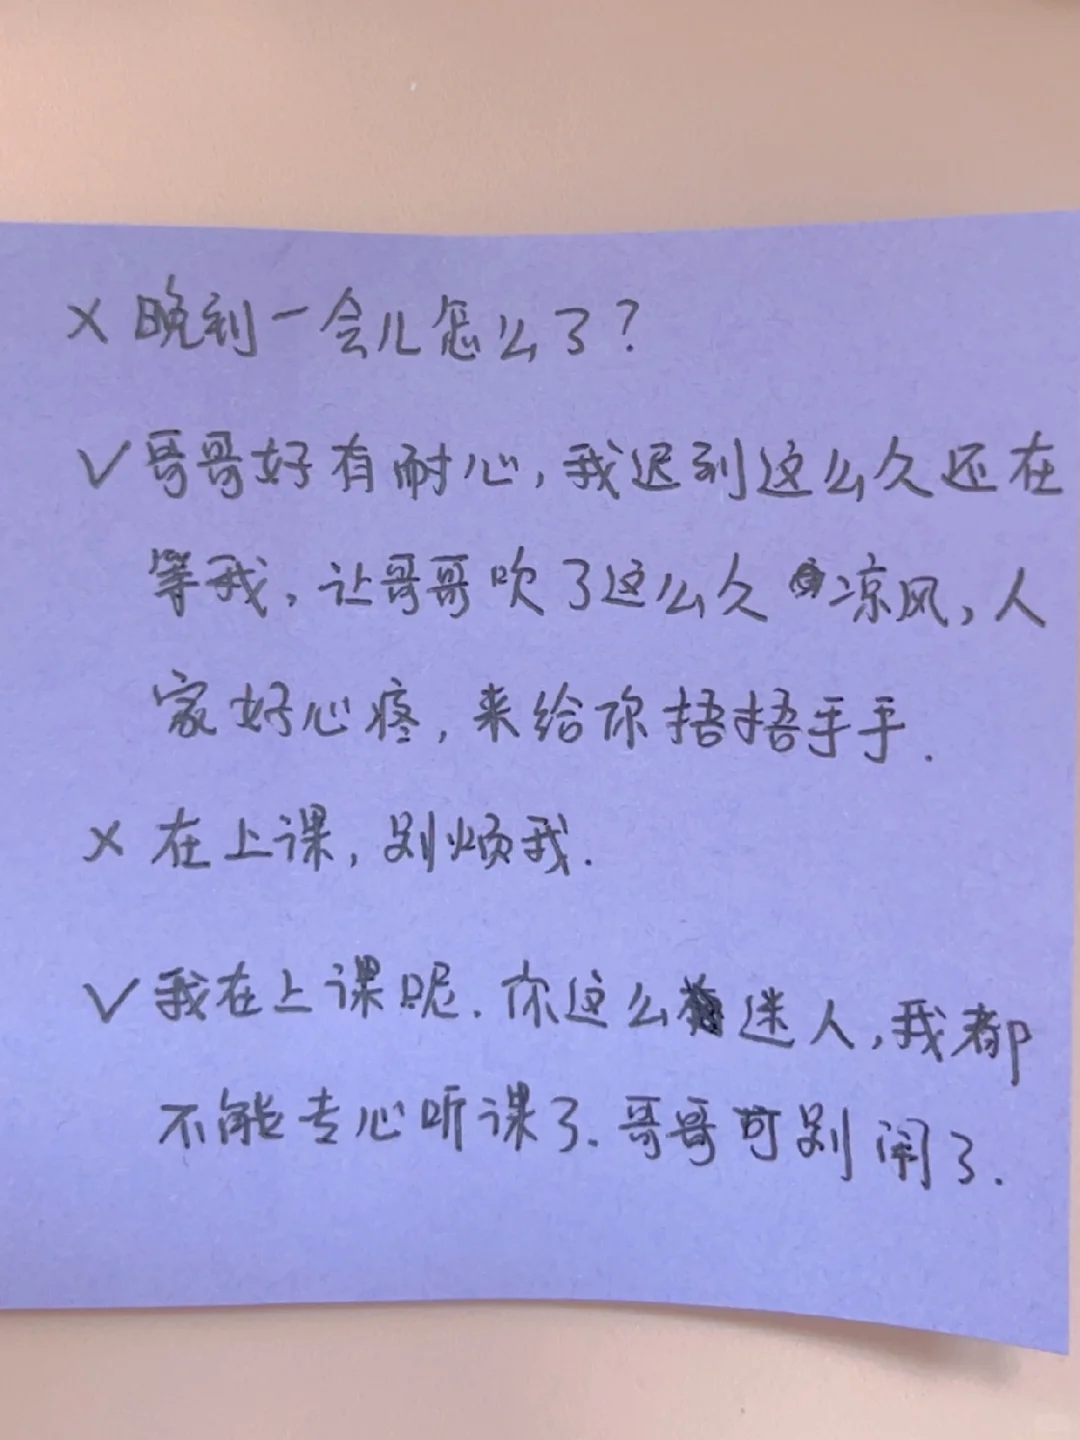 × 晚到一会儿怎么了？
✓ 哥哥好有耐心,我迟到这么久还在
等我,让哥哥吹了这么久凉风,人
家好心疼,来给你捂捂手手.
× 在上课,别烦我.
✓ 我在上课呢.你这么迷人,我都
不能专心听课了.哥哥可别闹了.